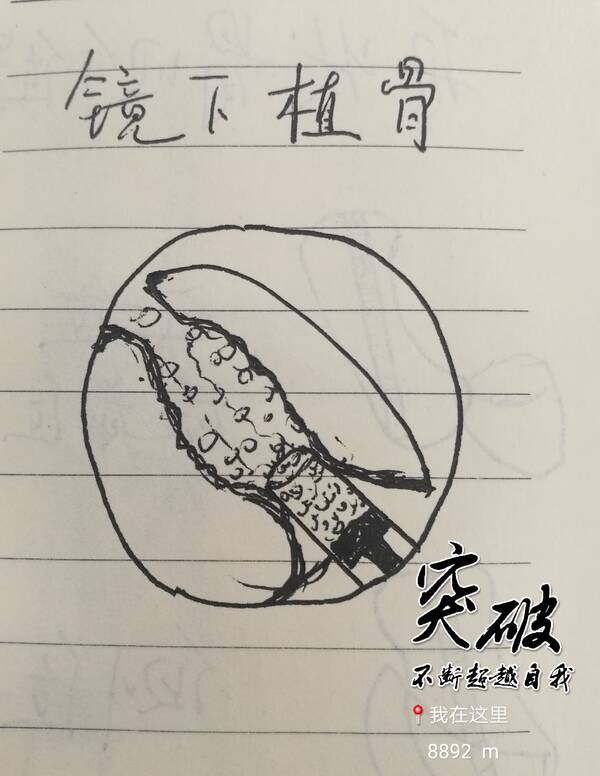 镜下植骨
突破
不断超越自我
我在这里
8892 m